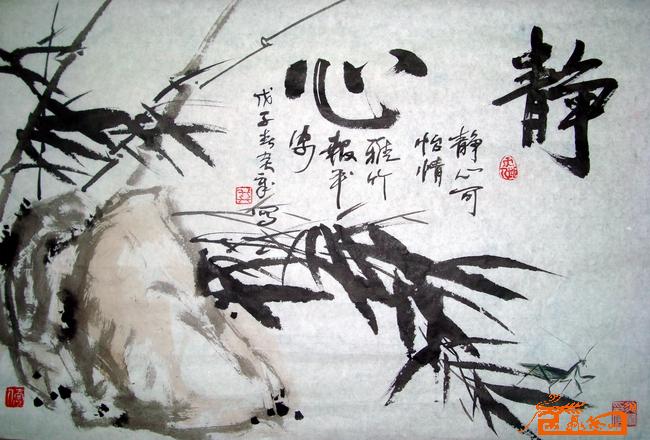 静心
静心可
怡情
雅竹
报平
安
戊子春 写